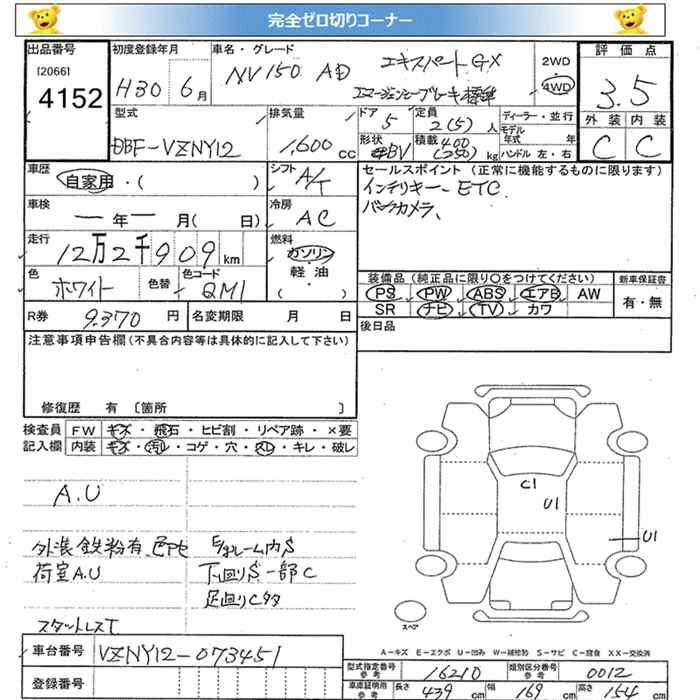 完全ゼロ切りコーナー
出品番号
[2066]
4152
初度登録年月
H30 6月
車名・グレード
NV150 AD エキスパートGX
エマージェンシーブレーキ標準
2WD
4WD
評価点
3.5
外装 内装
C C
型式
DBF-VZNY12
排気量
1,600 cc
ドア
5
定員
2(5)人
形状
BV
積載
400
(250)kg
ディーラー・並行
モデル
年式 年
ハンドル 左・右
車歴
自家用・( )
シフト
A/T
車検
— 年 — 月( 日)
冷房
AC
走行
12万2千909km
燃料
ガソリン
軽油
( )
色
ホワイト
色替
色コード
QM1
R券 9,370 円
名変期限 月 日
セールスポイント(正常に機能するものに限ります)
インテリキー、ETC
バックカメラ、
装備品(純正品に限り○をつけてください)
PS PW ABS エアB AW
SR ナビ TV カワ
新車保証書
有・無
後日品
注意事項申告欄(不具合内容等は具体的に記入して下さい)
修復歴 有〔箇所 〕
検査員
記入欄
FW キズ・飛石・ヒビ割・リペア跡・×要
内装 キズ・汚レ・コゲ・穴・スレ・キレ・破レ
A.U
外装鉄粉有
荷室A.U
スタットレスT
下廻りS一部C
足廻りC
C1
U1
U1
スペア
A-キズ E-エクボ U-凹み W-補修跡 S-サビ C-腐食 XX-交換済
車台番号 VZNY12-073451
登録番号
型式指定番号
参考
16210
類別区分番号
参考
0012
車庫証明用
参考
長さ 439 cm 幅 169 cm 高さ 154 cm